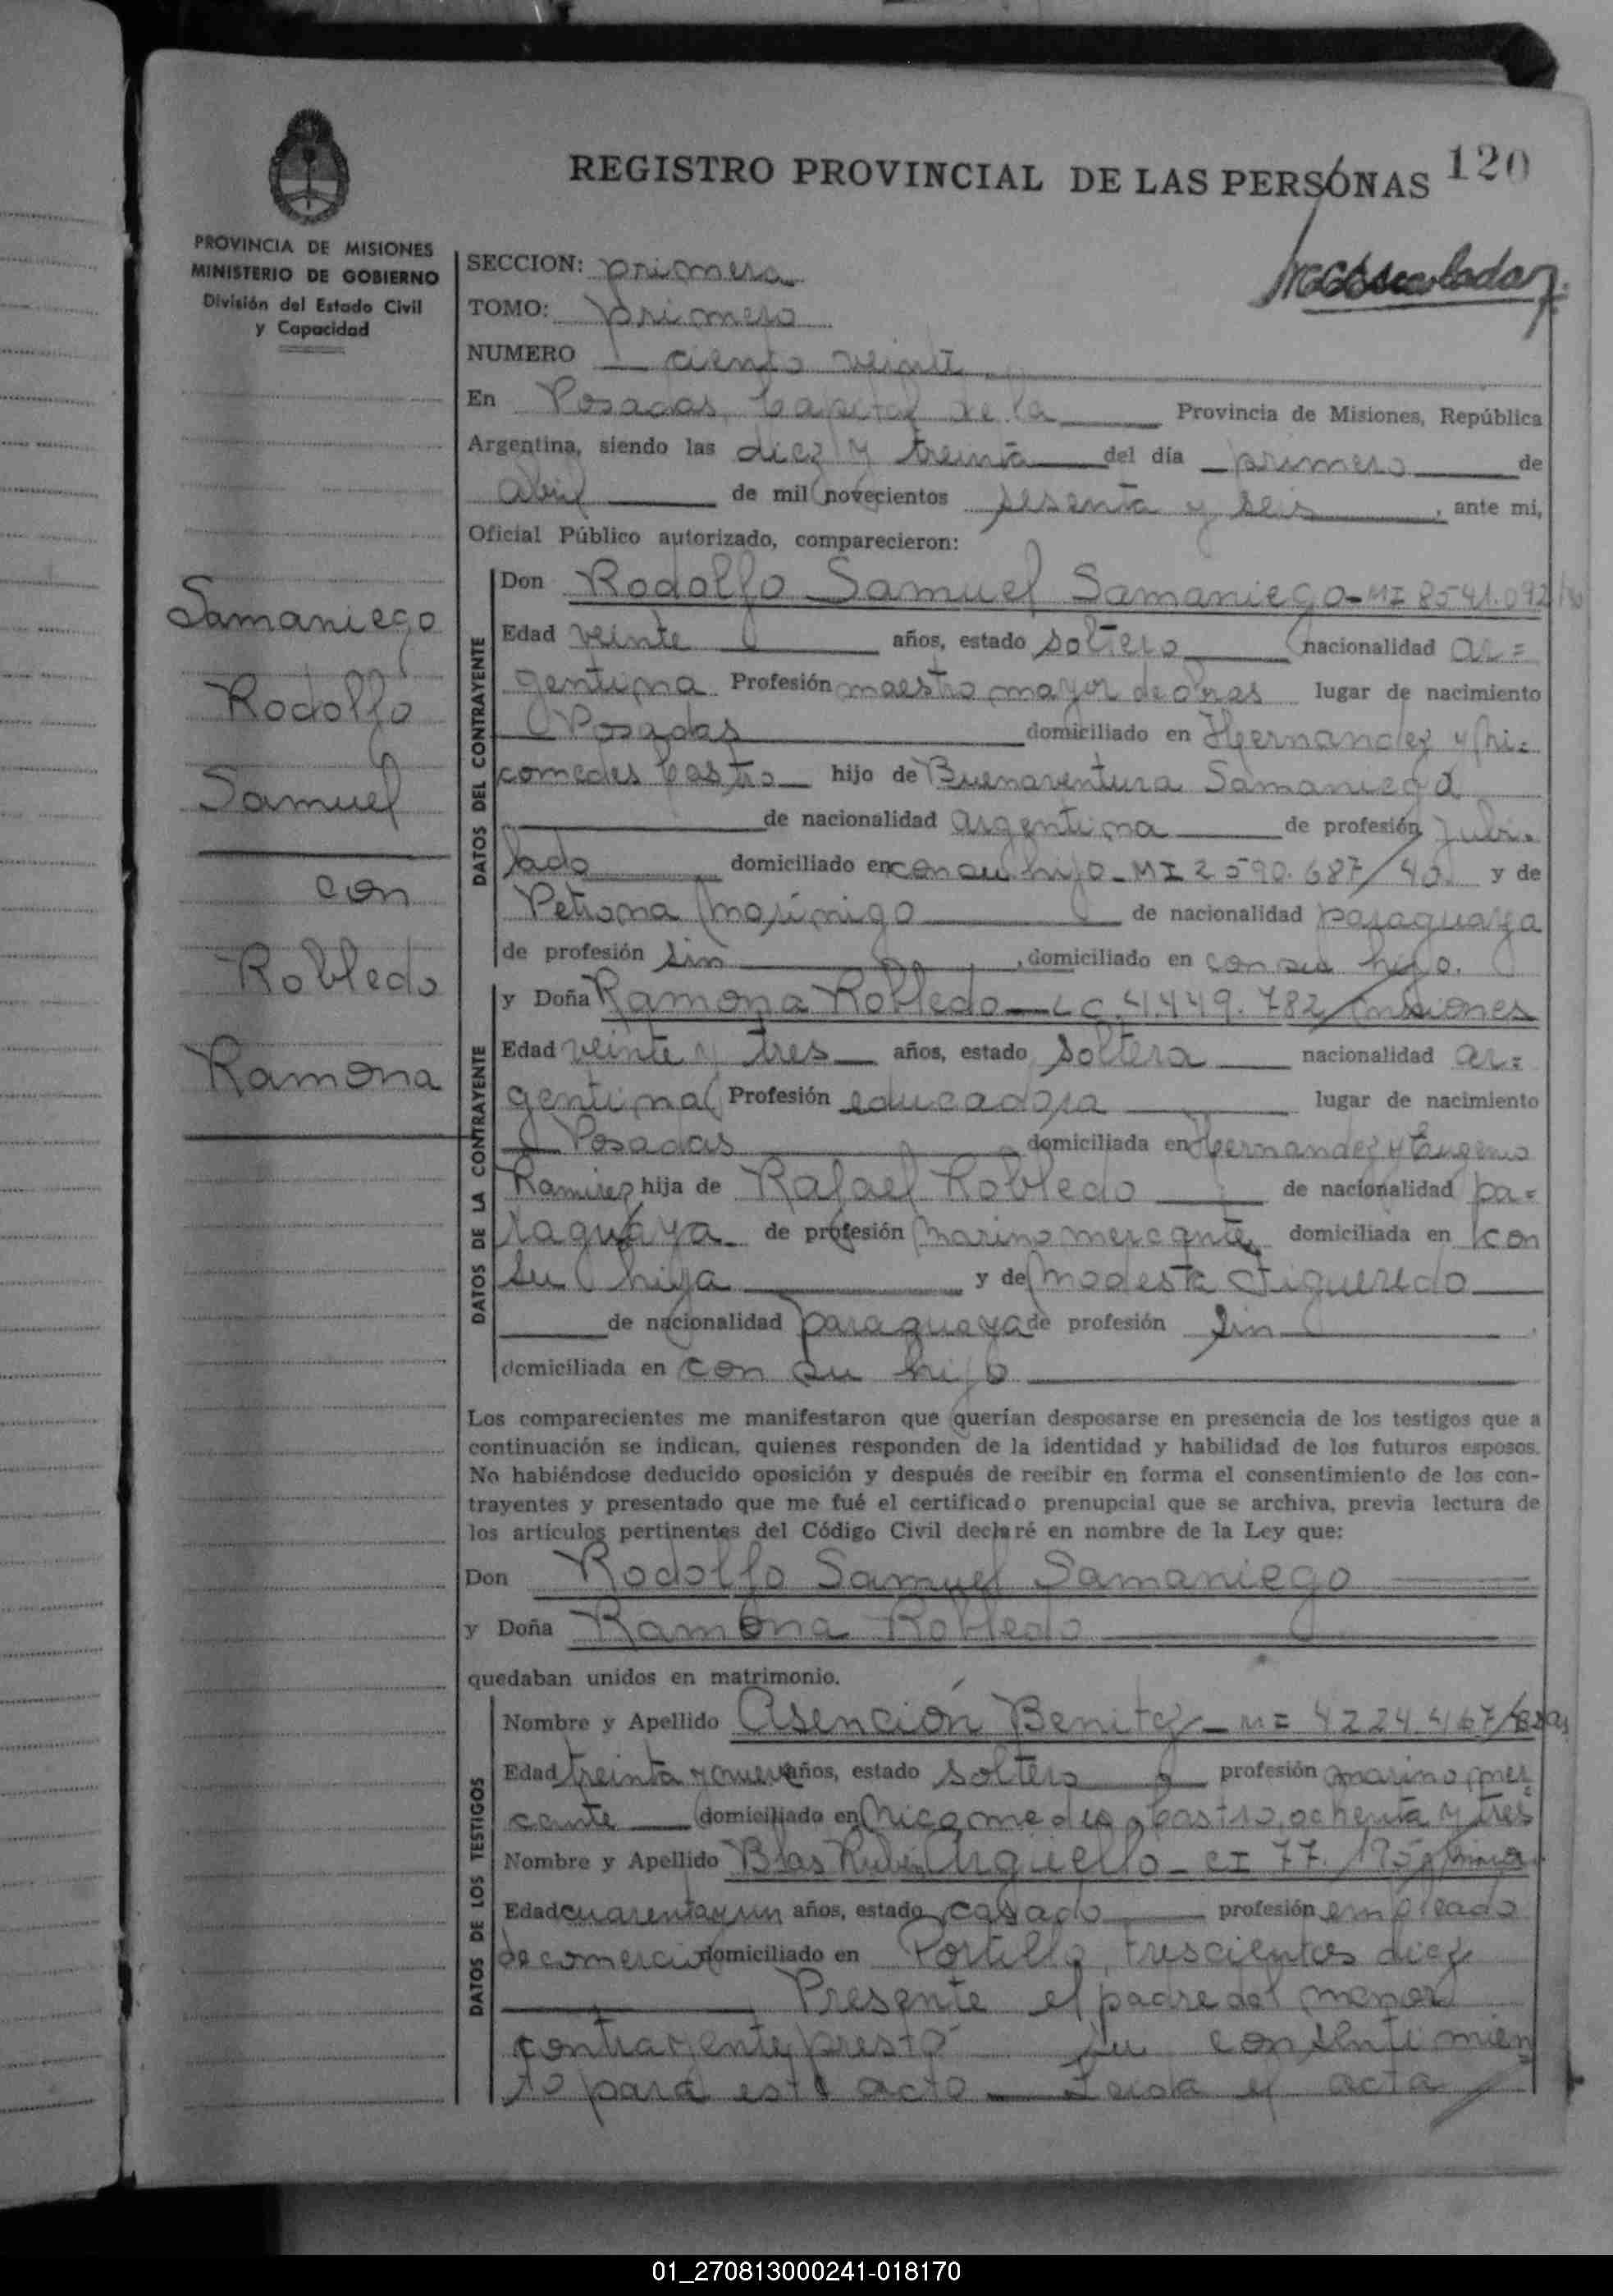 REGISTRO PROVINCIAL DE LAS PERSONAS 120
PROVINCIA DE MISIONES
MINISTERIO DE GOBIERNO
División del Estado Civil
y Capacidad
SECCION: primera
TOMO: primero
NUMERO ciento veinte
En Posadas, Capital de la Provincia de Misiones, República
Argentina, siendo las diez y treinta del día primero de
abril de mil novecientos sesenta y seis, ante mi,
Oficial Público autorizado, comparecieron:
Samaniego
Rodolfo
Samuel
con
Robledo
Ramona
DATOS DEL CONTRAYENTE
Don Rodolfo Samuel Samaniego - MI 8541.092
Edad veinte años, estado soltero nacionalidad ar=
gentina Profesión maestro mayor de obras lugar de nacimiento
Posadas domiciliado en Hernandez y Ni=
comedes Castro hijo de Buenaventura Samaniego
de nacionalidad argentina de profesión jubi=
lado domiciliado en con su hijo - MI 2590.687/40 y de
Petrona Mosimigo de nacionalidad paraguaya
de profesión sin, domiciliado en con su hijo.
DATOS DE LA CONTRAYENTE
y Doña Ramona Robledo - LC. 4.449.782 Misiones
Edad veinte y tres años, estado soltera nacionalidad ar=
gentina Profesión educadora lugar de nacimiento
Posadas domiciliada en Hernandez y Eugenio
Ramirez hija de Rafael Robledo de nacionalidad pa=
raguaya de profesión marino mercante domiciliada en con
su hija y de Modesta Figueredo
de nacionalidad paraguaya de profesión sin
domiciliada en con su hijo
Los comparecientes me manifestaron que querían desposarse en presencia de los testigos que a
continuación se indican, quienes responden de la identidad y habilidad de los futuros esposos.
No habiéndose deducido oposición y después de recibir en forma el consentimiento de los con-
trayentes y presentado que me fué el certificado prenupcial que se archiva, previa lectura de
los articulos pertinentes del Código Civil declaré en nombre de la Ley que:
Don Rodolfo Samuel Samaniego
y Doña Ramona Robledo
quedaban unidos en matrimonio.
DATOS DE LOS TESTIGOS
Nombre y Apellido Asención Benitez - MI 4224.467
Edad treinta y nueve años, estado soltero profesión marino mer=
cante domiciliado en Nicomedes Castro, ochenta y tres
Nombre y Apellido Blas Rubén Arguello - CI 77.
Edad cuarenta y un años, estado casado profesión empleado
de comercio domiciliado en Portillo, trescientos diez
Presente el padre del menor
contrayente prestó su consentimien
to para este acto - Leida el acta
01_270813000241-018170